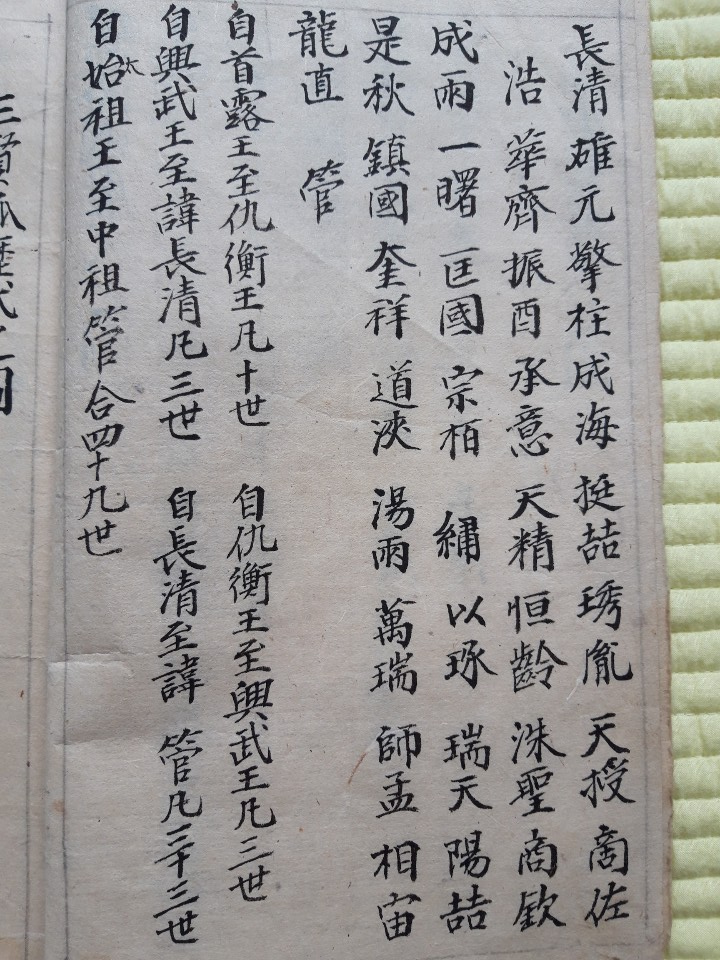 長清 雄元 擎柱 成海 挺喆 琇胤 天授 商佐
浩 華齊 振酉 承意 天精 恒齡 洙聖 商欽
成雨 一曙 匡國 宗栢 繡 以琢 瑞天 陽喆
是秋 鎮國 奎祥 道浹 湯雨 萬瑞 師孟 相宙
龍直 管
自首露王至仇衡王凡十世 自仇衡王至興武王凡三世
自興武王至諱長清凡三世 自長清至諱 管凡三十三世
自始太祖王至中祖管合四十九世